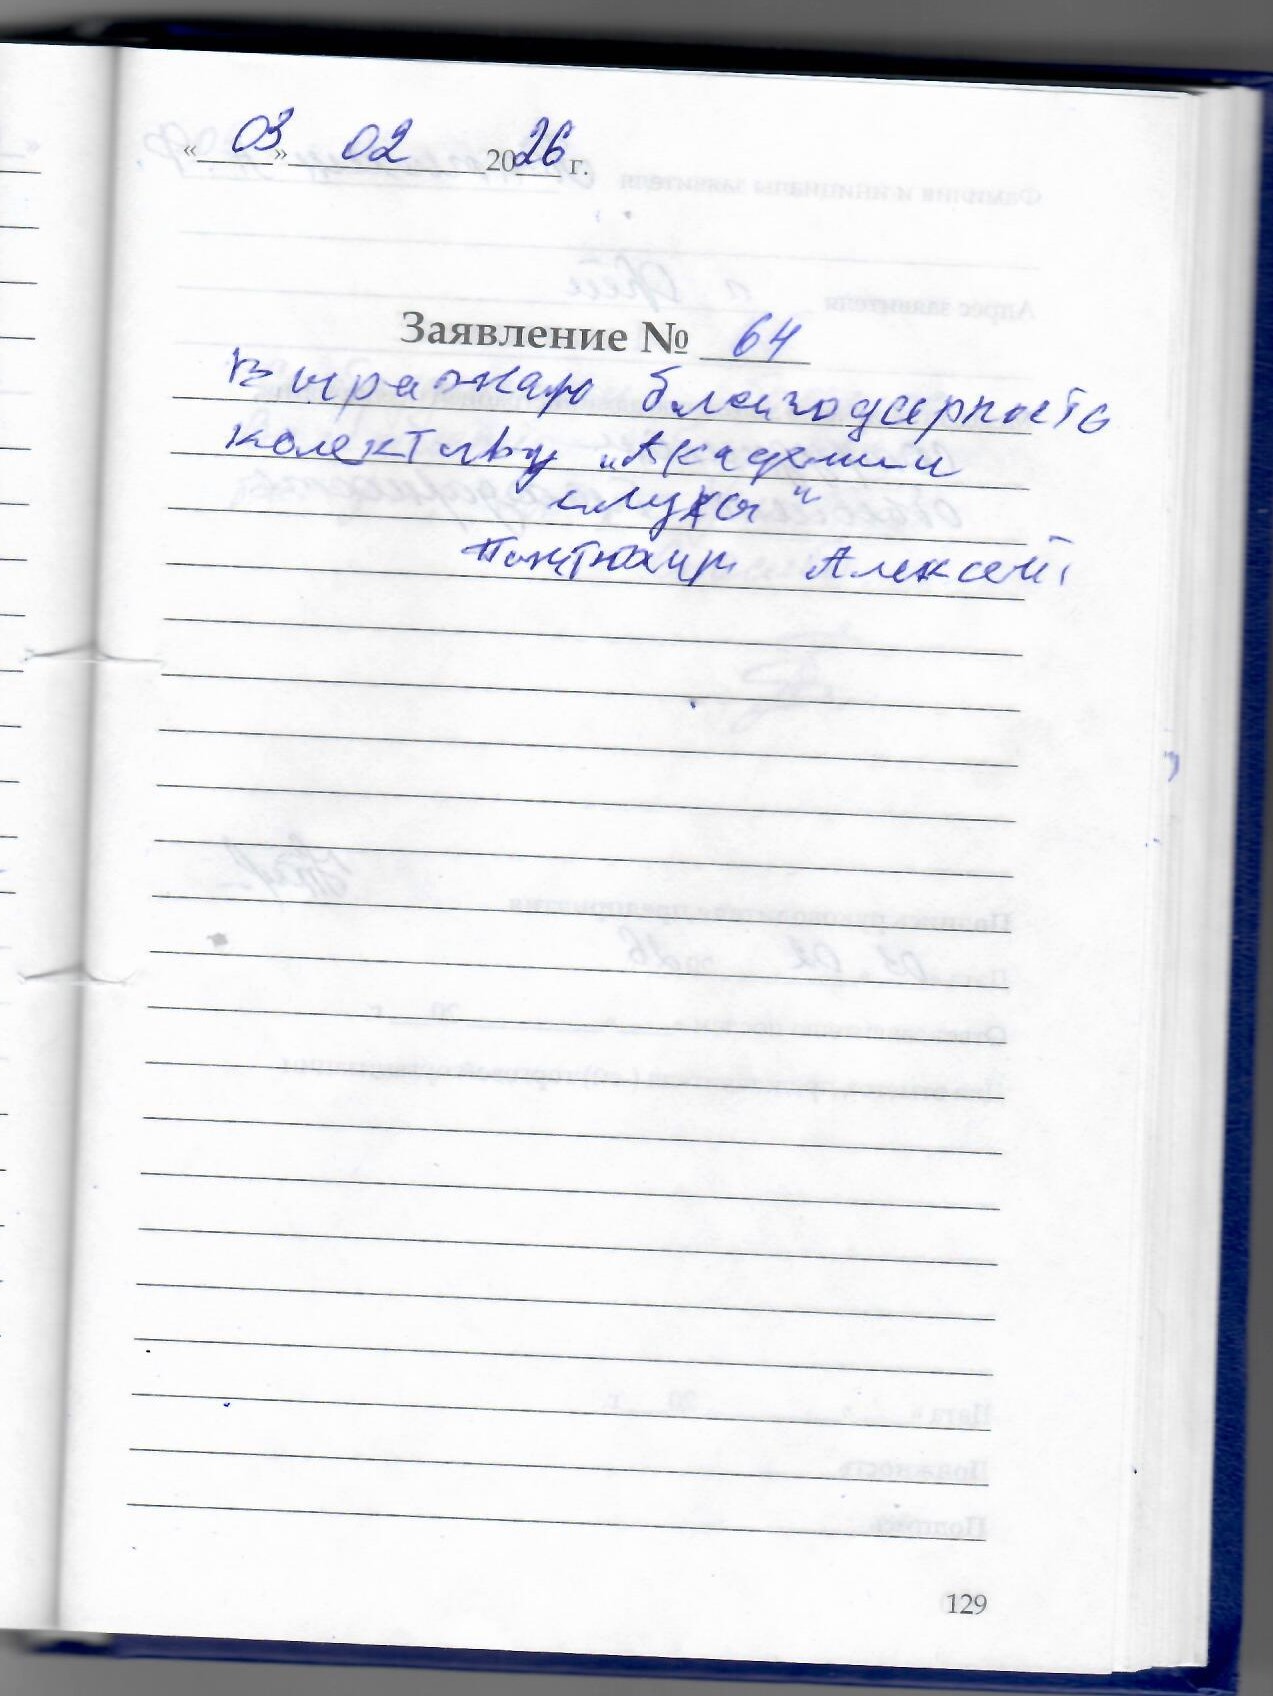 «03» 02 2026 г.
Заявление № 64
Выражаю благодарность
колективу „Академии
слуха"
Алексей
129